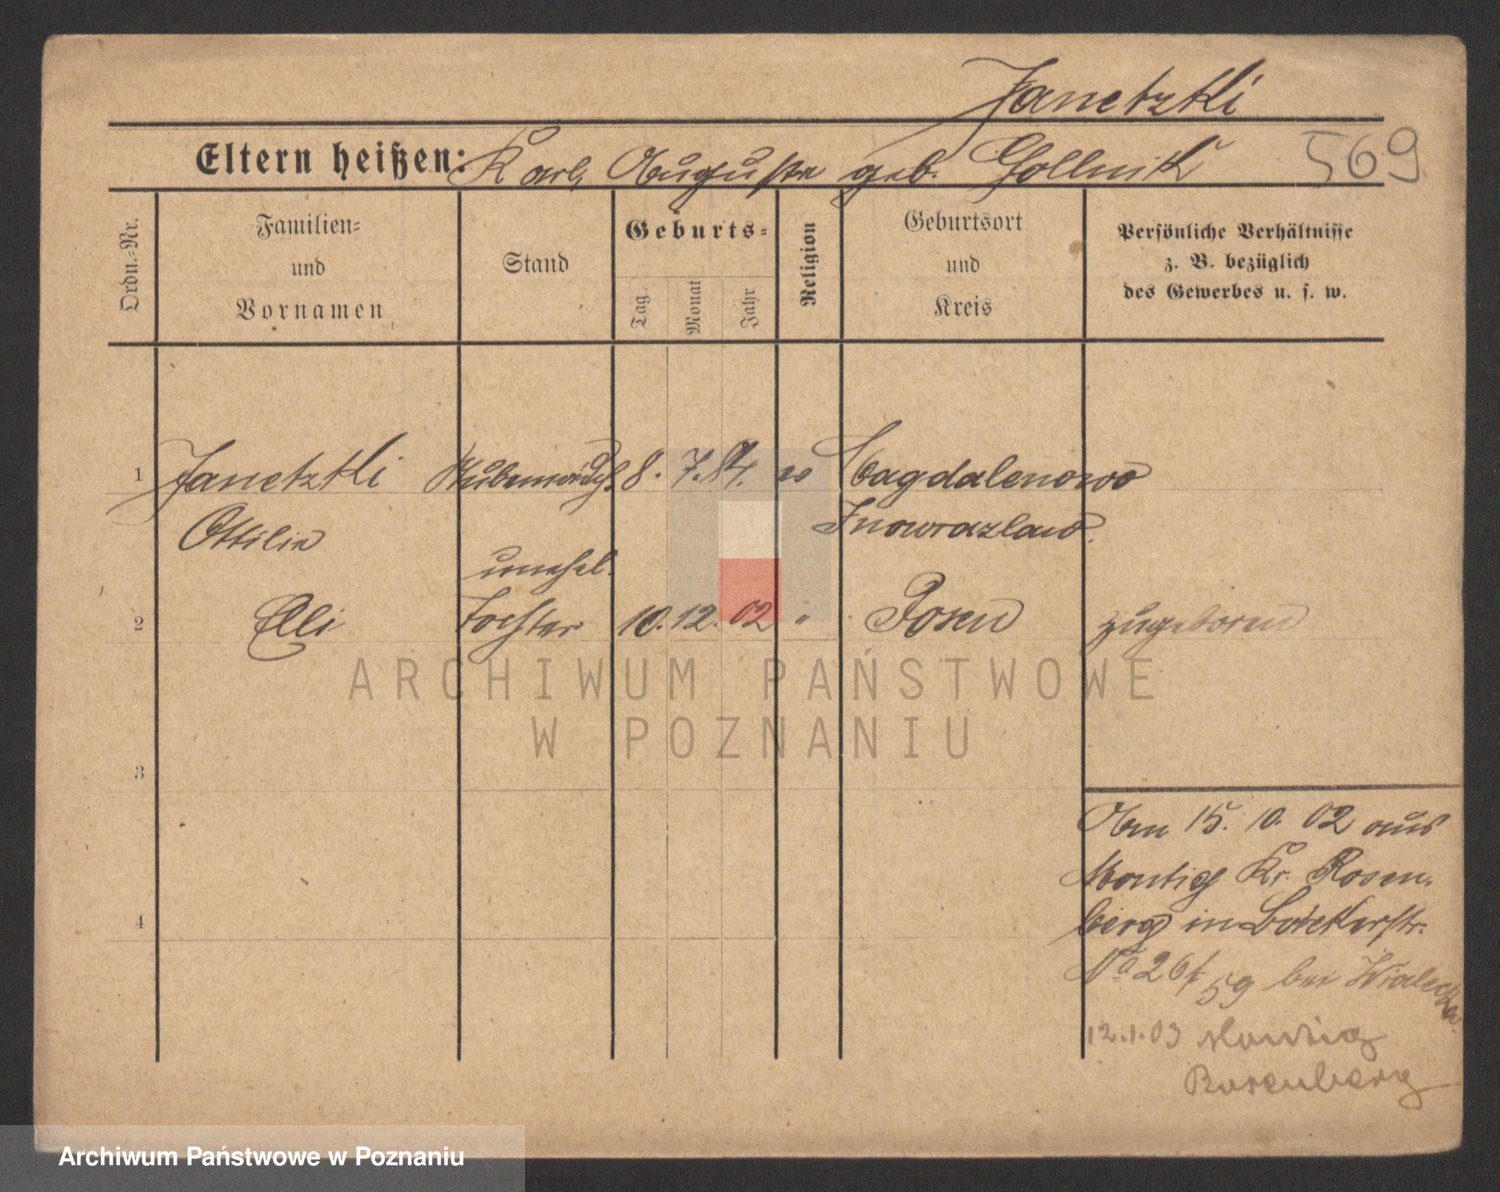 Janetzki
Eltern heißen: Karl, Auguste geb. Gollnik 569
Ordn.-Nr.
Familien-
und
Vornamen
Stand
Geburts-
Tag
Monat
Jahr
Religion
Geburtsort
und
Kreis
Persönliche Verhältnisse
z. B. bezüglich
des Gewerbes u. s. w.
1 Janetzki 8. 7. 84. ev Magdalenowo
Ottilie Inowrazlaw.
unehel.
2 Elli Tochter 10. 12. 02 " Posen zugeboren
ARCHIWUM PAŃSTWOWE
W POZNANIU
3
Am 15. 10. 02 aus
Montig Kr. Rosen-
4
berg in Bäckerstr.
No 26 / 59 bei
12.1.03 Montig
Rosenberg
Archiwum Państwowe w Poznaniu